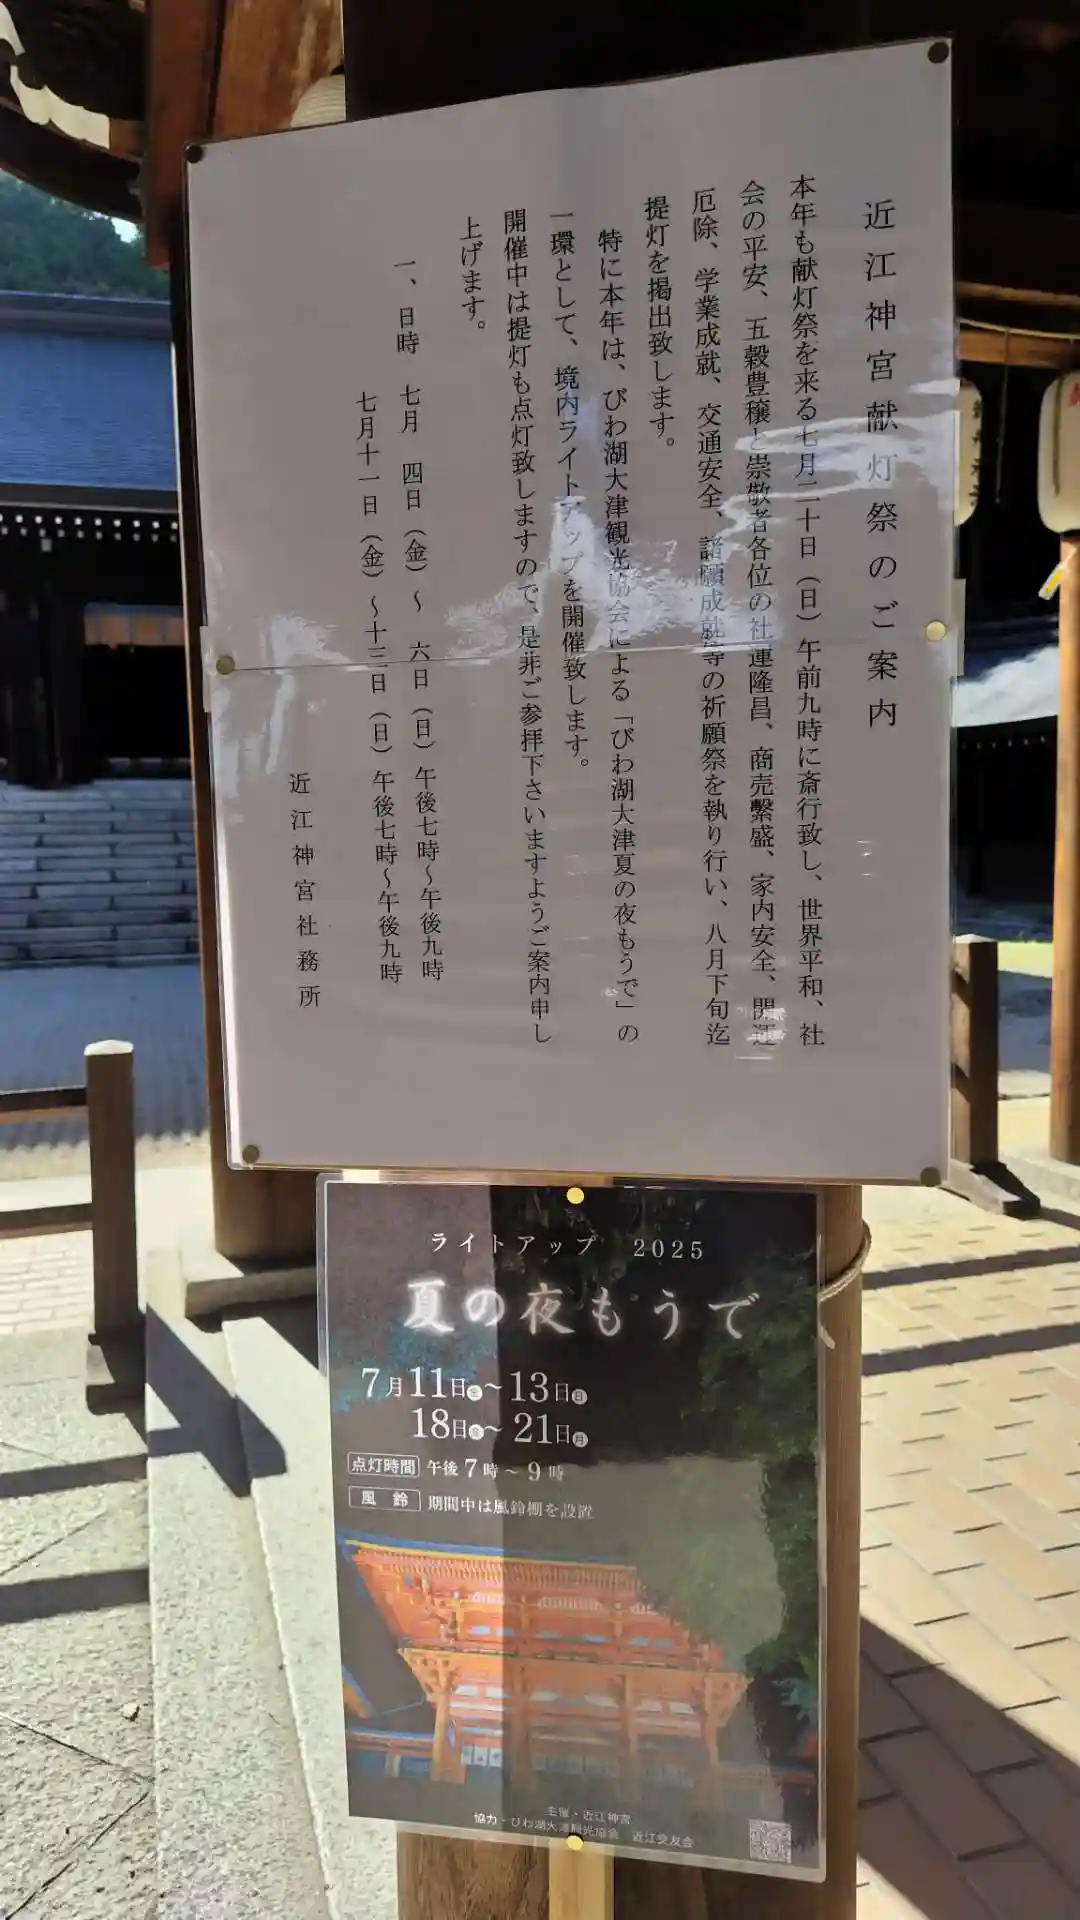 近江神宮献灯祭のご案内
本年も献灯祭を来る七月二十日（日）午前九時に斎行致し、世界平和、社
会の平安、五穀豊穣と崇敬者各位の社運隆昌、商売繫盛、家内安全、開運
厄除、学業成就、交通安全、諸願成就等の祈願祭を執り行い、八月下旬迄
提灯を掲出致します。
特に本年は、びわ湖大津観光協会による「びわ湖大津夏の夜もうで」の
一環として、境内ライトアップを開催致します。
開催中は提灯も点灯致しますので、是非ご参拝下さいますようご案内申し
上げます。
一、日時 七月 四日（金）～ 六日（日）午後七時～午後九時
七月十一日（金）～十三日（日）午後七時～午後九時
近江神宮社務所
ライトアップ 2025
夏の夜もうで
7月11日金～13日日
18日金～21日月
点灯時間 午後7時～9時
風鈴 期間中は風鈴棚を設置
主催・近江神宮
協力・びわ湖大津観光協会 近江交友会